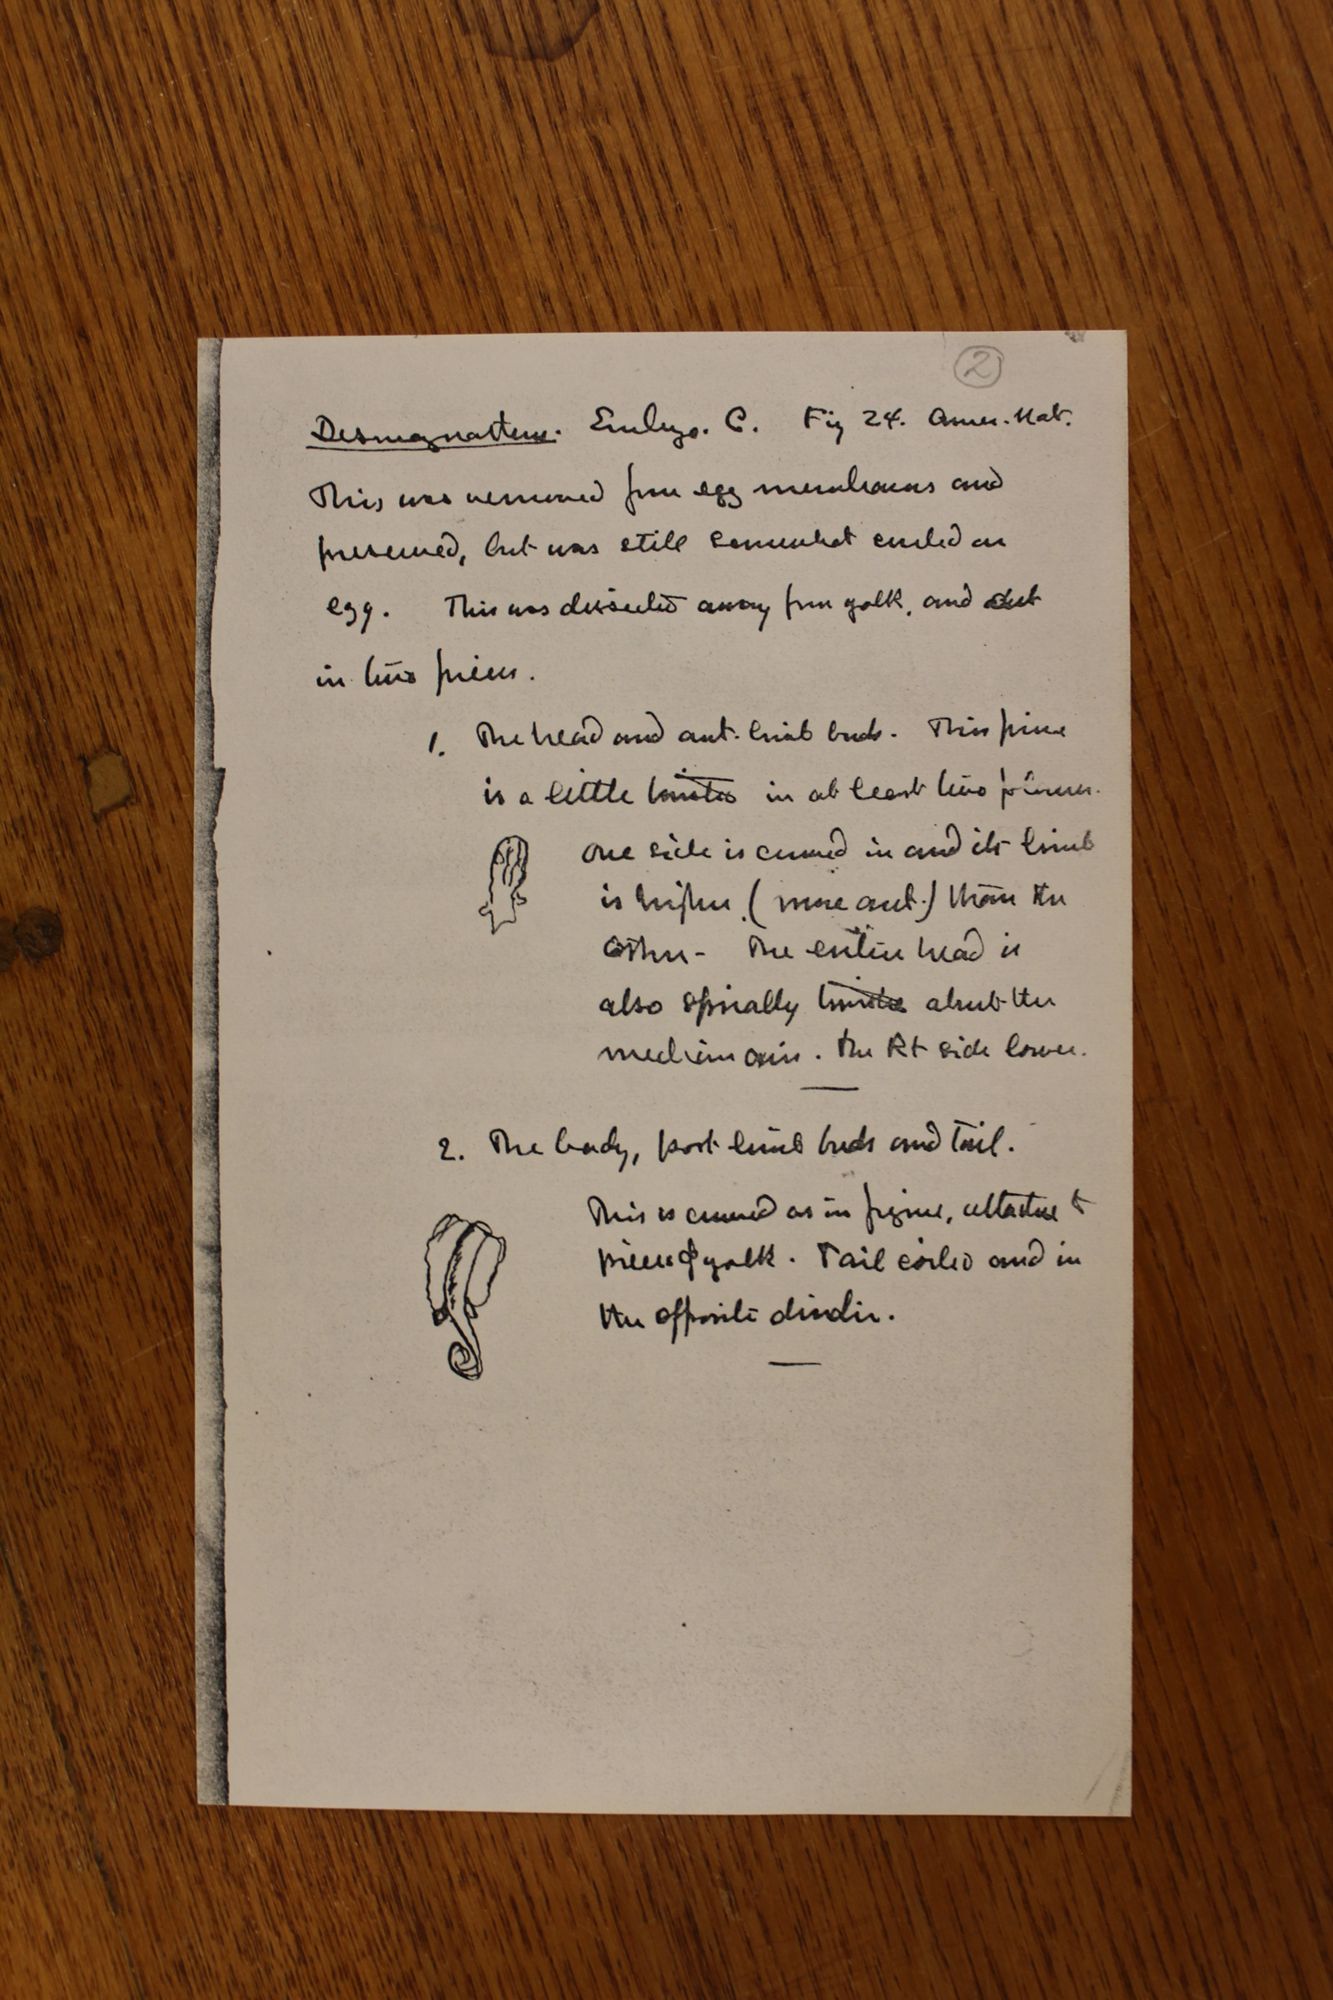 2
Desmognathus. Embryo. C. Fig 24. Amer. Nat.
This was removed from egg membranes and
preserved, but was still somewhat curled on
egg. This was dissected away from yolk, and cut
in two pieces.
1. The head and ant. limb buds. This piece
is a little twisted in at least two planes.
One side is curved in and its limb
is higher (more ant.) than the
other - The entire head is
also spirally twisted about the
median axis. The Rt side lower.
2. The body, post limb buds and tail.
This is curved as in figure, attached to
piece of yolk. Tail coiled and in
the opposite direction.